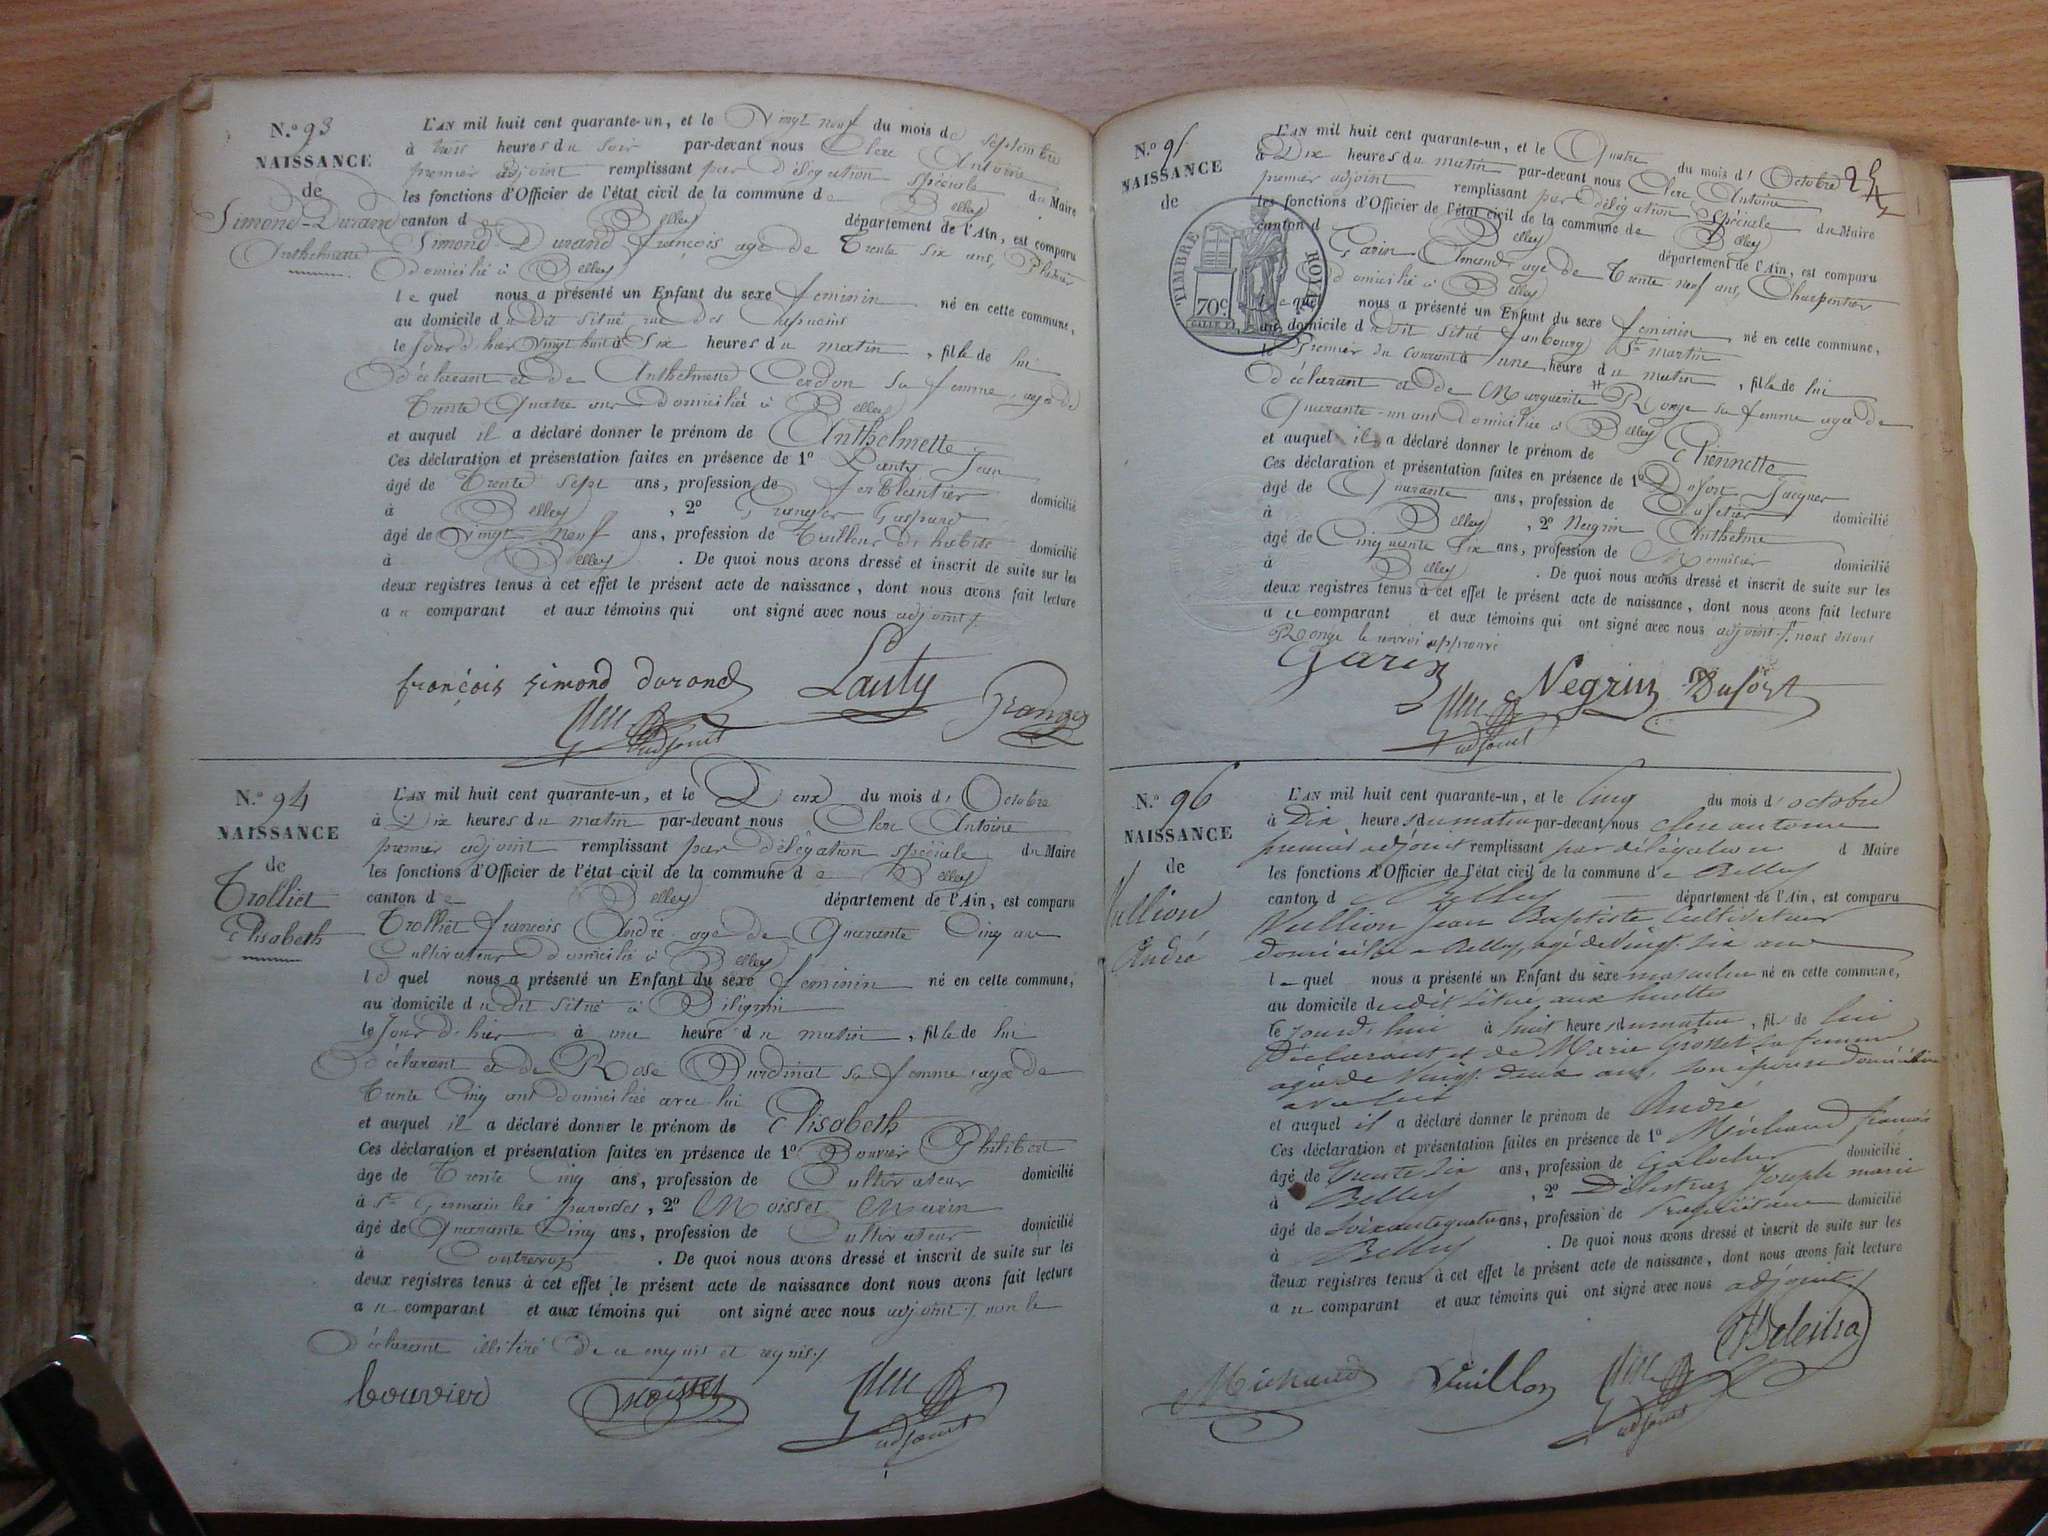 N.º 93
NAISSANCE
de
Simond-Durand
Anthelmette
L'AN mil huit cent quarante-un, et le Vingt neuf du mois de septembre
à trois heures du soir par-devant nous Clerc Antoine
premier adjoint remplissant par délégation spéciale du Maire
les fonctions d'Officier de l'état civil de la commune de Belley
canton de Belley département de l'Ain, est comparu
Simond Durand françois age de trente six ans,
domicilié à Belley
le quel nous a présenté un Enfant du sexe feminin né en cette commune,
au domicile du dit situé rue des Capucins
le jour d'hier vingt huit à Six heures du matin, fille de lui
déclarant et de Anthelmette Cerdon sa femme, agée de
trente quatre ans domiciliée à Belley
et auquel il a déclaré donner le prénom de Anthelmette
Ces déclaration et présentation faites en présence de 1º Lauty Jean
âgé de trente sept ans, profession de ferblantier domicilié
à Belley, 2º Granger Gaspard
âgé de vingt neuf ans, profession de tailleur d'habits domicilié
à Belley. De quoi nous avons dressé et inscrit de suite sur les
deux registres tenus à cet effet le présent acte de naissance, dont nous avons fait lecture
au comparant et aux témoins qui ont signé avec nous adjoint ./.
françois simond durand Lauty Granger
Clerc
adjoint
N.º 94
NAISSANCE
de
Trolliet
Elisabeth
L'AN mil huit cent quarante-un, et le Deux du mois d'Octobre
à Dix heures du matin par-devant nous Clerc Antoine
premier adjoint remplissant par délégation spéciale du Maire
les fonctions d'Officier de l'état civil de la commune de Belley
canton de Belley département de l'Ain, est comparu
Trolliet françois André age de Quarante Cinq ans
Cultivateur domicilié à Belley
le quel nous a présenté un Enfant du sexe feminin né en cette commune,
au domicile du dit situé à Bilignin
le Jour d'hier à une heure du matin, fille de lui
déclarant et de Rose Burdinat sa femme, agée de
trente Cinq ans domiciliée avec lui
et auquel il a déclaré donner le prénom de Elisabeth
Ces déclaration et présentation faites en présence de 1º Bouvier Philibert
âgé de trente Cinq ans, profession de Cultivateur domicilié
à St Germain les paroisses, 2º Moisset Marin
âgé de Quarante Cinq ans, profession de Cultivateur domicilié
à Contrevoz. De quoi nous avons dressé et inscrit de suite sur les
deux registres tenus à cet effet le présent acte de naissance dont nous avons fait lecture
au comparant et aux témoins qui ont signé avec nous adjoint ./. non le
déclarant illitéré de ce enquis et requis ./.
bouvier moisset Clerc
adjoint
N.º 95
NAISSANCE
de
TIMBRE ROYAL
70c
25
L'AN mil huit cent quarante-un, et le Quatre du mois d'Octobre
à Dix heures du matin par-devant nous Clerc Antoine
premier adjoint remplissant par délégation spéciale du Maire
les fonctions d'Officier de l'état civil de la commune de Belley
canton d Belley département de l'Ain, est comparu
Garin Amand age de trente neuf ans, Charpentier
domicilié à Belley
le quel nous a présenté un Enfant du sexe feminin né en cette commune,
au domicile du dit situé faubourg St martin
le Premier du courant à une heure du matin, fille de lui
déclarant et de Marguerite # Ronge sa femme agée de
Quarante-un ans domiciliée à Belley
et auquel il a déclaré donner le prénom de Etiennette
Ces déclaration et présentation faites en présence de 1º Dufort Jacques
âgé de Quarante ans, profession de Cafetier domicilié
à Belley, 2º Negrin Anthelme
âgé de Cinquante Six ans, profession de domicilié
à Belley. De quoi nous avons dressé et inscrit de suite sur les
deux registres tenus à cet effet le présent acte de naissance, dont nous avons fait lecture
au comparant et aux témoins qui ont signé avec nous adjoint ./. # nous disons
Ronge le renvoi approuvé
Garin
Clerc Negrin Dufort
adjoint
N.º 96
NAISSANCE
de
Vullion
André
L'AN mil huit cent quarante-un, et le Cinq du mois d'octobre
à Dix heures du matin par-devant nous Clerc antoine
premier adjoint remplissant par délégation d Maire
les fonctions d'Officier de l'état civil de la commune de Belley
canton d Belley département de l'Ain, est comparu
Vullion Jean Baptiste Cultivateur
domicilié a Belley, agé de Vingt six ans
le quel nous a présenté un Enfant du sexe masculin né en cette commune,
au domicile du dit situé aux huttes
le jourd'hui à huit heures du matin, fils de lui
Déclarant et de Marie Grosset sa femme
agée de Vingt deux ans, son épouse domiciliée
avec lui
et auquel il a déclaré donner le prénom de André
Ces déclaration et présentation faites en présence de 1º Michaud françois
âgé de trente six ans, profession de Galocher domicilié
à Belley, 2º Delestraz Joseph marie
âgé de soixante quatre ans, profession de Propriétaire domicilié
à Belley. De quoi nous avons dressé et inscrit de suite sur les
deux registres tenus à cet effet le présent acte de naissance, dont nous avons fait lecture
au comparant et aux témoins qui ont signé avec nous adjoint ./.
Delestra
Michaud Vuillon Clerc
adjoint